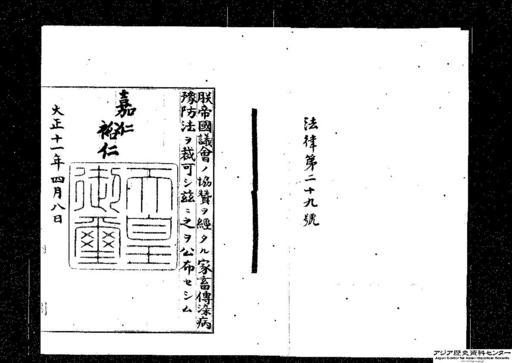 法律第二十九號
朕帝國議會ノ協賛ヲ經タル家畜傳染病
豫防法ヲ裁可シ茲ニ之ヲ公布セシム
嘉仁
裕仁
天皇
御璽
大正十一年四月八日
アジア歴史資料センター
Japan Center for Asian Historical Records